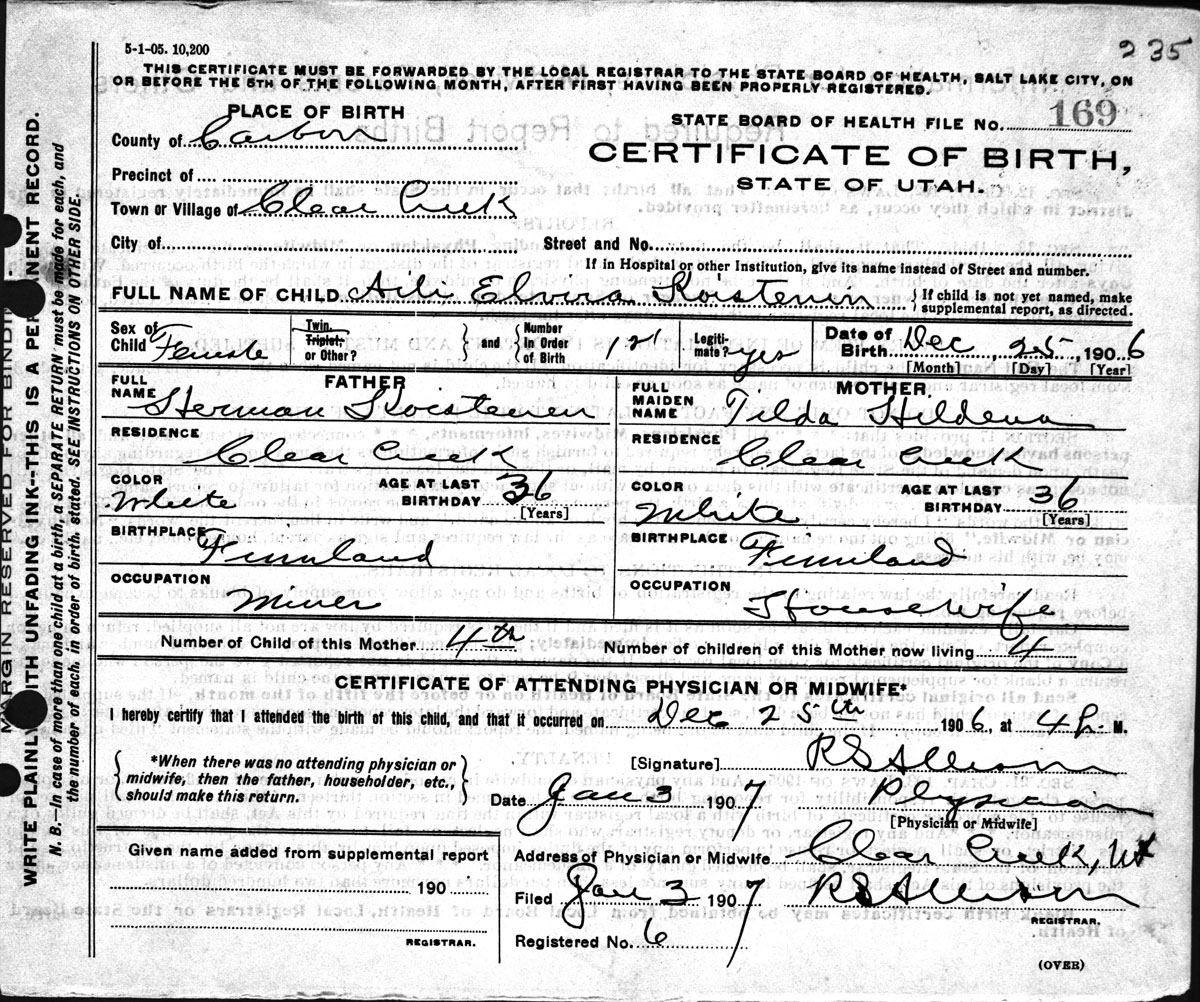 5-1-05. 10,200
2 35
THIS CERTIFICATE MUST BE FORWARDED BY THE LOCAL REGISTRAR TO THE STATE BOARD OF HEALTH, SALT LAKE CITY, ON
OR BEFORE THE 5TH OF THE FOLLOWING MONTH, AFTER FIRST HAVING BEEN PROPERLY REGISTERED.
PLACE OF BIRTH
STATE BOARD OF HEALTH FILE No. 169
County of Carbon
CERTIFICATE OF BIRTH,
STATE OF UTAH.
Precinct of
Town or Village of Clear Creek
City of Street and No.
If in Hospital or other Institution, give its name instead of Street and number.
FULL NAME OF CHILD Aili Elvira Koistenen
If child is not yet named, make
supplemental report, as directed.
Sex of
Child Female
Twin,
Triplet,
or Other?
and
Number
In Order
of Birth 1st
Legiti-
mate? yes
Date of
Birth Dec 25, 1906
[Month] [Day] [Year]
FATHER
FULL
NAME Herman Koistenen
RESIDENCE
Clear Creek
COLOR White AGE AT LAST
BIRTHDAY 36
[Years]
BIRTHPLACE Finnland
OCCUPATION
Miner
MOTHER
FULL
MAIDEN
NAME Tilda Hildena
RESIDENCE
Clear Creek
COLOR White AGE AT LAST
BIRTHDAY 36
[Years]
BIRTHPLACE Finnland
OCCUPATION
Housewife
Number of Child of this Mother 4th Number of children of this Mother now living 4
CERTIFICATE OF ATTENDING PHYSICIAN OR MIDWIFE*
I hereby certify that I attended the birth of this child, and that it occurred on Dec 25th 1906, at 4 P. M.
*When there was no attending physician or
midwife, then the father, householder, etc.,
should make this return.
[Signature] RS Allison
Date Jan 3 1907 Physician
[Physician or Midwife]
Given name added from supplemental report
190
REGISTRAR.
Address of Physician or Midwife Clear Creek, Ut
Filed Jan 3 1907 RS Allison
REGISTRAR.
Registered No. 6
(OVER)
MARGIN RESERVED FOR BINDING.
WRITE PLAINLY WITH UNFADING INK--THIS IS A PERMANENT RECORD.
N. B.—In case of more than one child at a birth, a SEPARATE RETURN must be made for each, and
the number of each, in order of birth, stated. SEE INSTRUCTIONS ON OTHER SIDE.